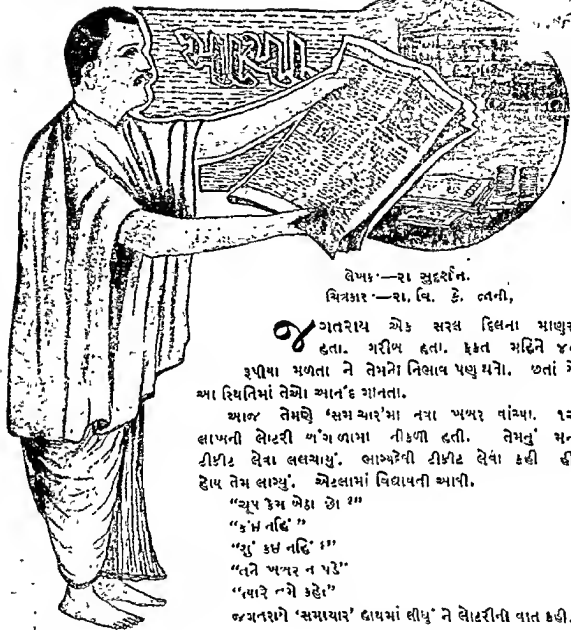 લેખક—રા સુદર્શન.
ચિત્રકાર—રા. વિ. કે. જાની,
જગતરાય એક સરલ દિલના માણસ
હતા. ગરીબ હતા. ફક્ત મહિને ૪૦
રૂપીયા મળતા ને તેમનો નિભાવ પણ થતો. છતાં
આ સ્થિતિમાં તેઓ આનંદ માનતા.
આજ તેમણે ‘સમચાર’મા નવા ખબર વાંચ્યા.
લાખની લોટરી બંગાળામા નીકળી હતી. તેમનું મન
ટીકીટ લેવા લલચાયું. ભાગ્યદેવી ટીકીટ લેવા કહી
હોય તેમ લાગ્યું. એટલામાં વિદ્યાવતી આવી.
“ચૂપ કેમ બેઠા છો ?”
“કંઈ નહિં”
“શું કંઈ નહિં ?”
“તને ખબર ન પડે”
“ત્યારે તમે કહો”
જગતરાયે ‘સમાચાર’ હાથમાં લીધું ને લોટરીની વાત કહી.